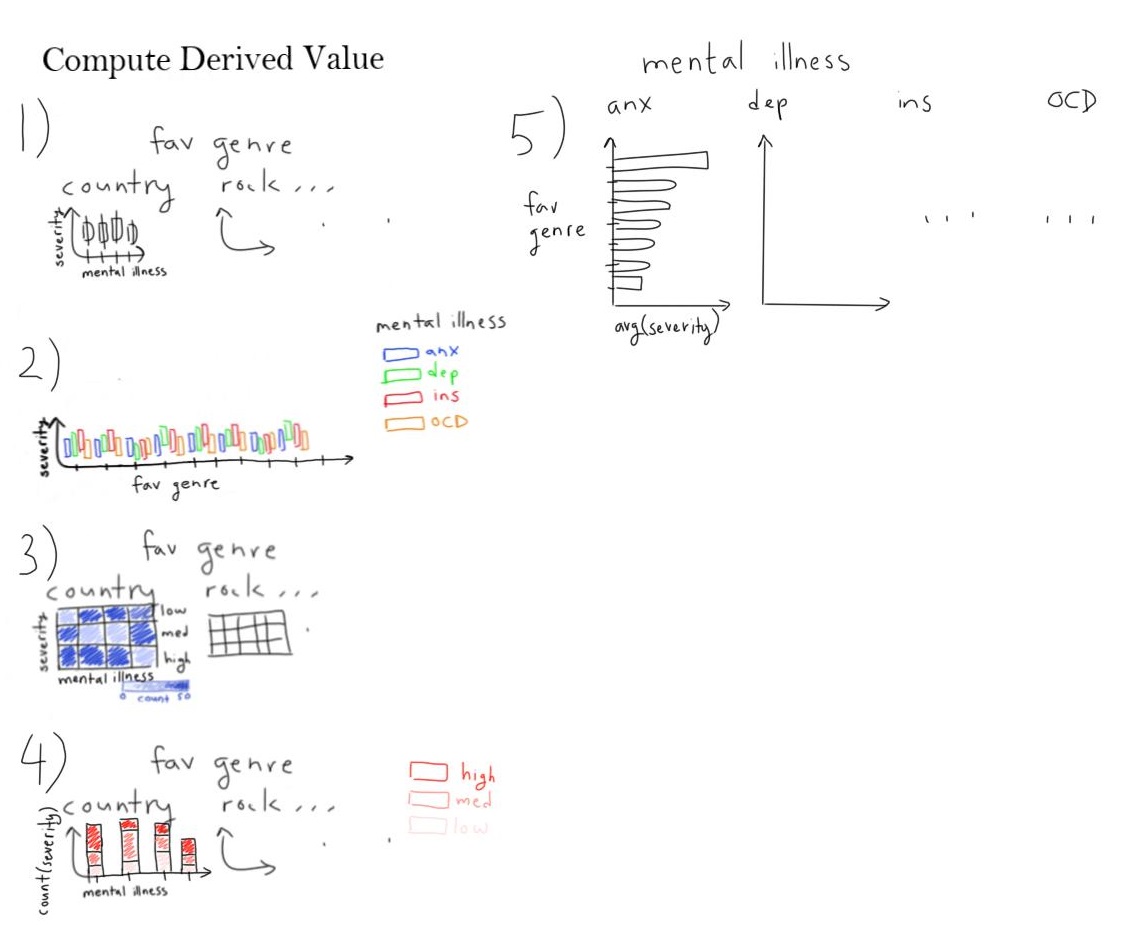 Compute Derived Value
1)
fav genre
country rock ...
severity
mental illness
2)
mental illness
anx
dep
ins
OCD
severity
fav genre
3)
fav genre
country rock ...
severity
low
med
high
mental illness
0 count 50
4)
fav genre
country rock ...
count(severity)
mental illness
high
med
low
5)
mental illness
anx dep ins OCD
fav
genre
avg(severity)
... ...